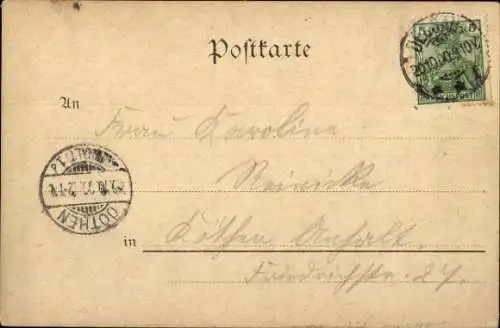 Postkarte
An
Frau Karoline
Reinicke
in Köthen Anhalt.
Friedrichstr. 27.
CÖTHEN